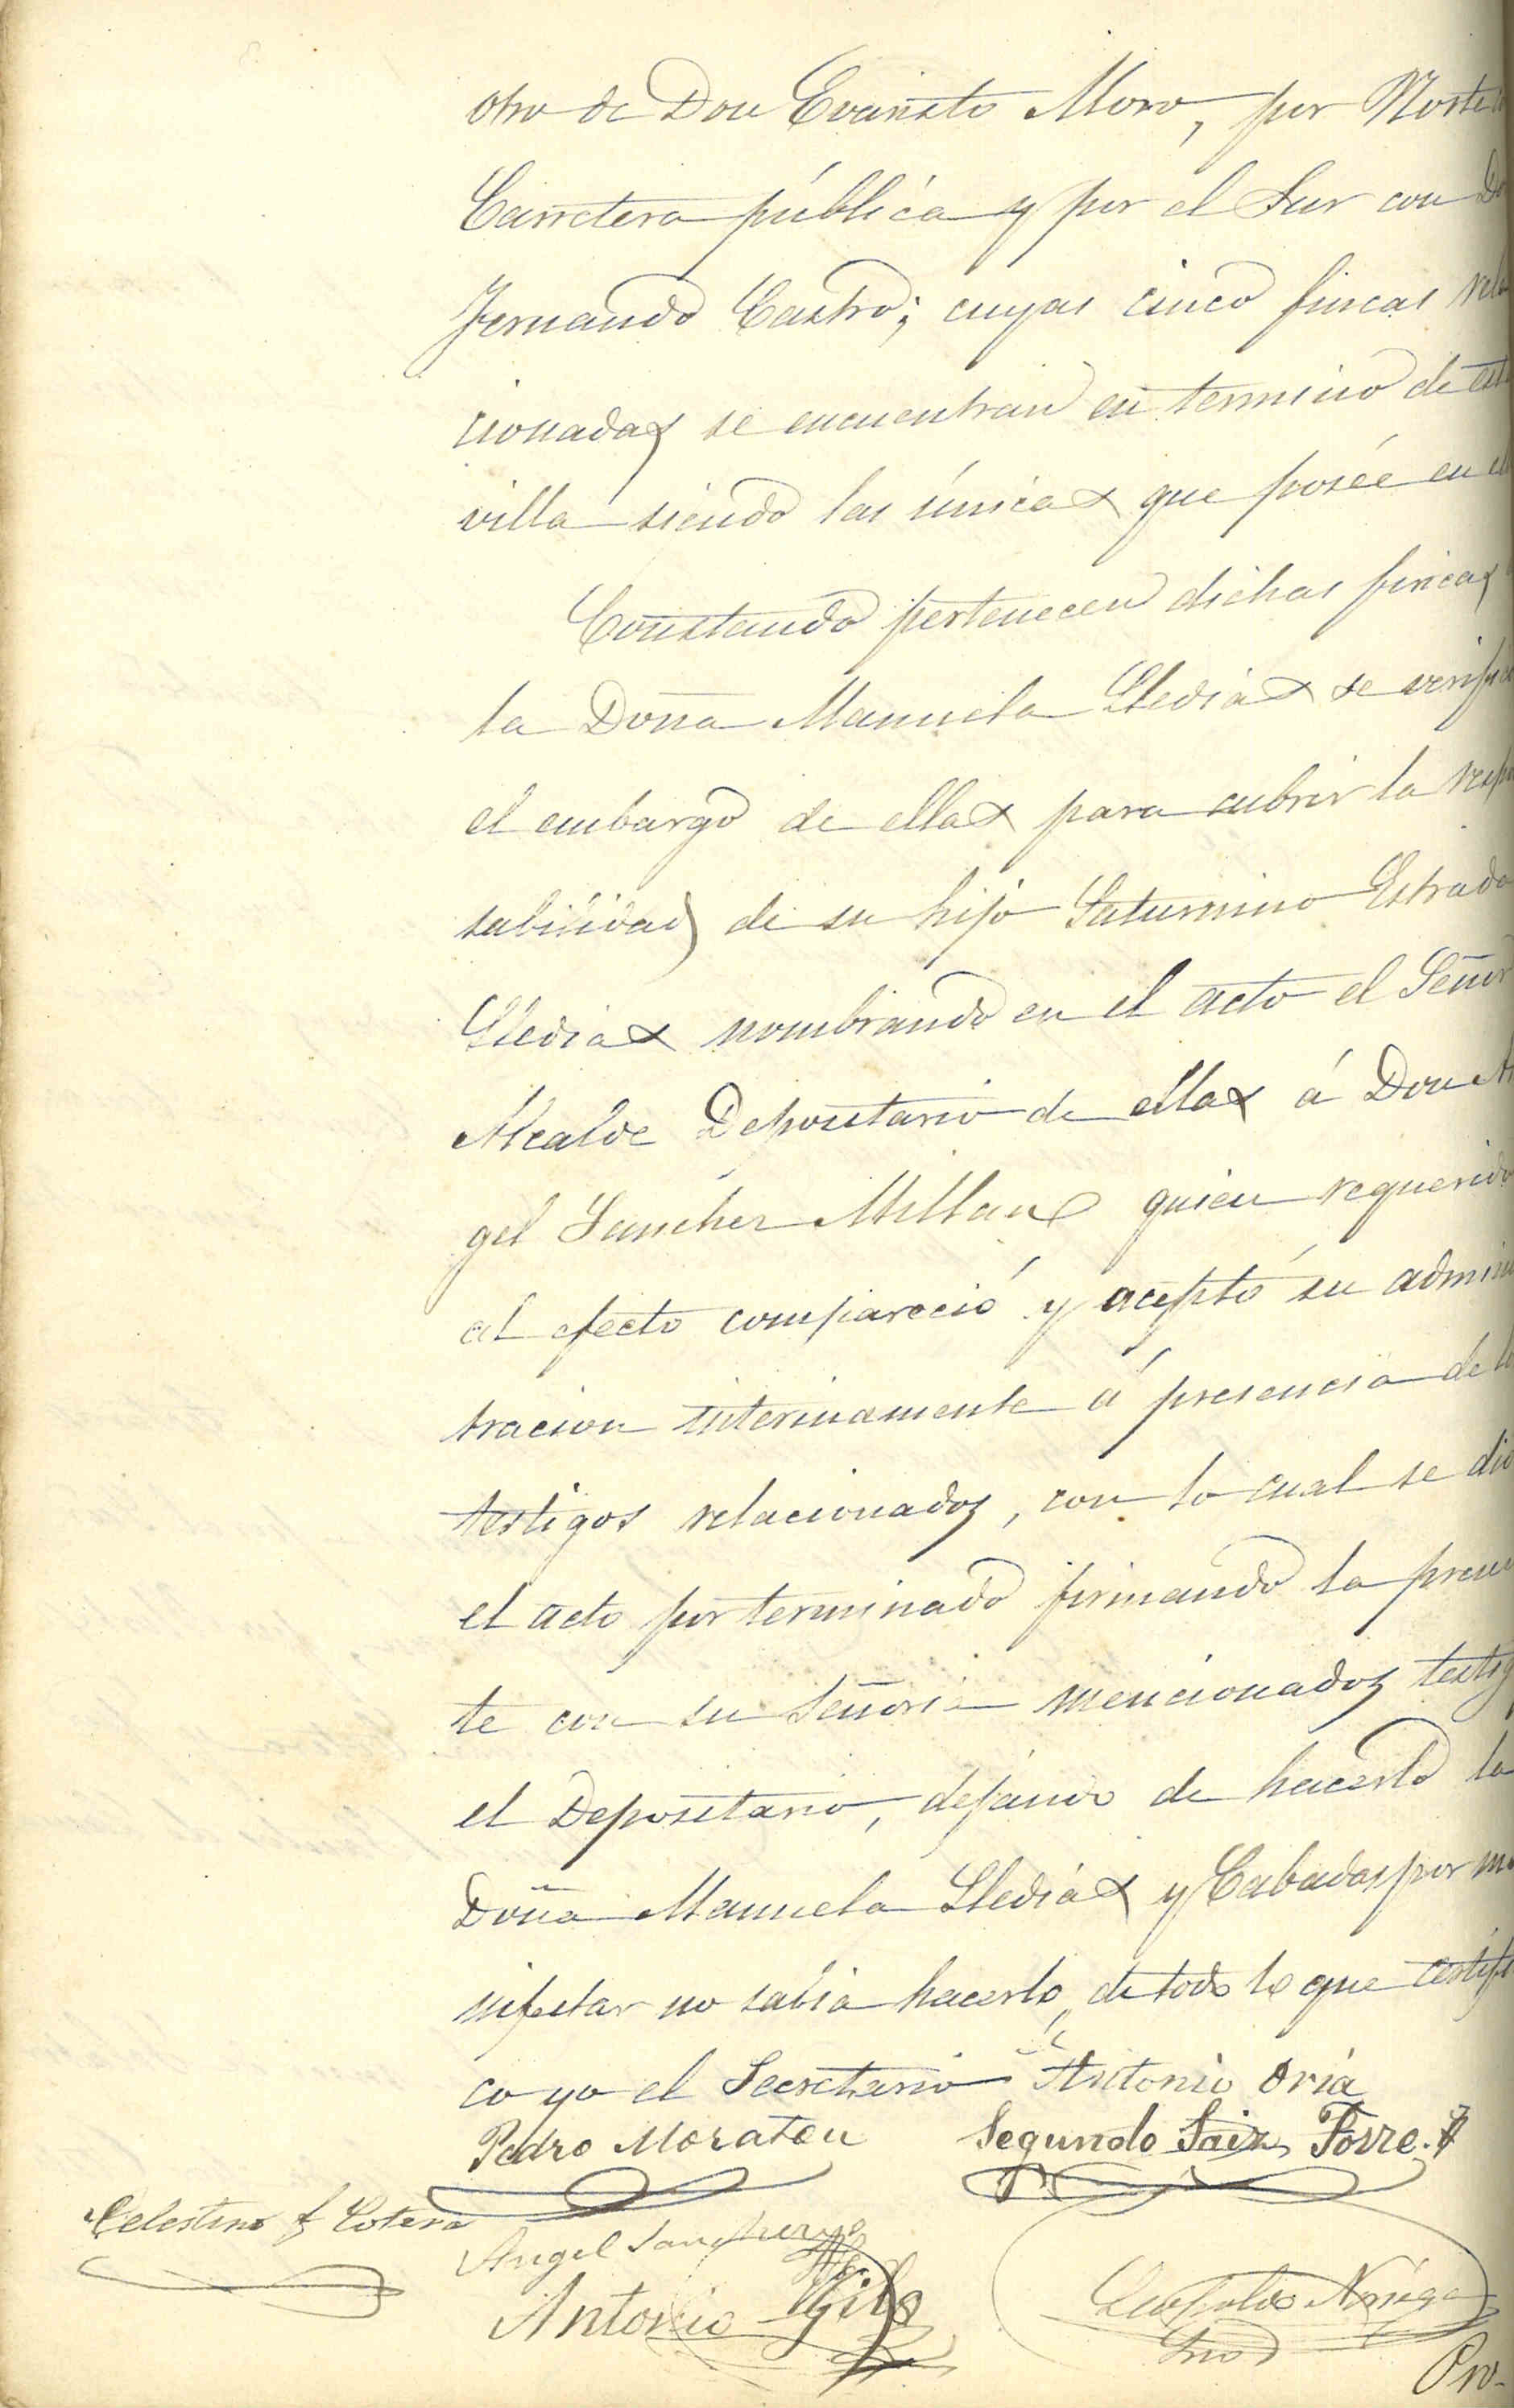 otro de Don Evaristo Moro, por Norte
Carretera pública y por el Sur con D
Fernando Castro; cuyas cinco fincas rela
cionadas se encuentran en termino de est
villa siendo las únicas que posée en el
Constando pertenecen dichas fincas
la Doña Manuela Lledias se verific
el embargo de ellas para cubrir la respo
sabilidad de su hijo Saturnino Estrada
Lledias nombrando en el acto el Señor
Alcalde Depositario de ellas á Don An
gel Sanchez Millan quien requerido
al efecto compareció y aceptó su adminis
tracion interinamente á presencia de lo
testigos relacionados, con lo cual se dio
el acto por terminado firmando la presen
te con su Señoria mencionados testig
el Depositario, dejando de hacerlo la
Doña Manuela Lledias y Cabadas por ma
nifestar no sabia hacerlo, de todo lo que certifi
co yo el Secretario
Antonio Oria
Pedro Moraten Segundo Saiz Torre
Celestino F Cotera
Angel Sanchez
Antonio Gil
Leopoldo Noriega
Srio
Pro-